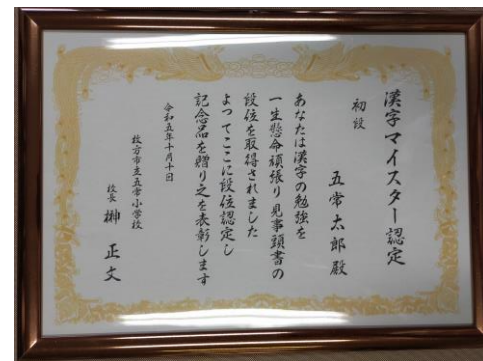 漢字マイスター認定
初段
五常太郎殿
あなたは漢字の勉強を
一生懸命頑張り見事頭書の
段位を取得されました
よってここに段位認定し
記念品を贈り之を表彰します
令和五年十月十日
枚方市立五常小学校
校長 榊 正文